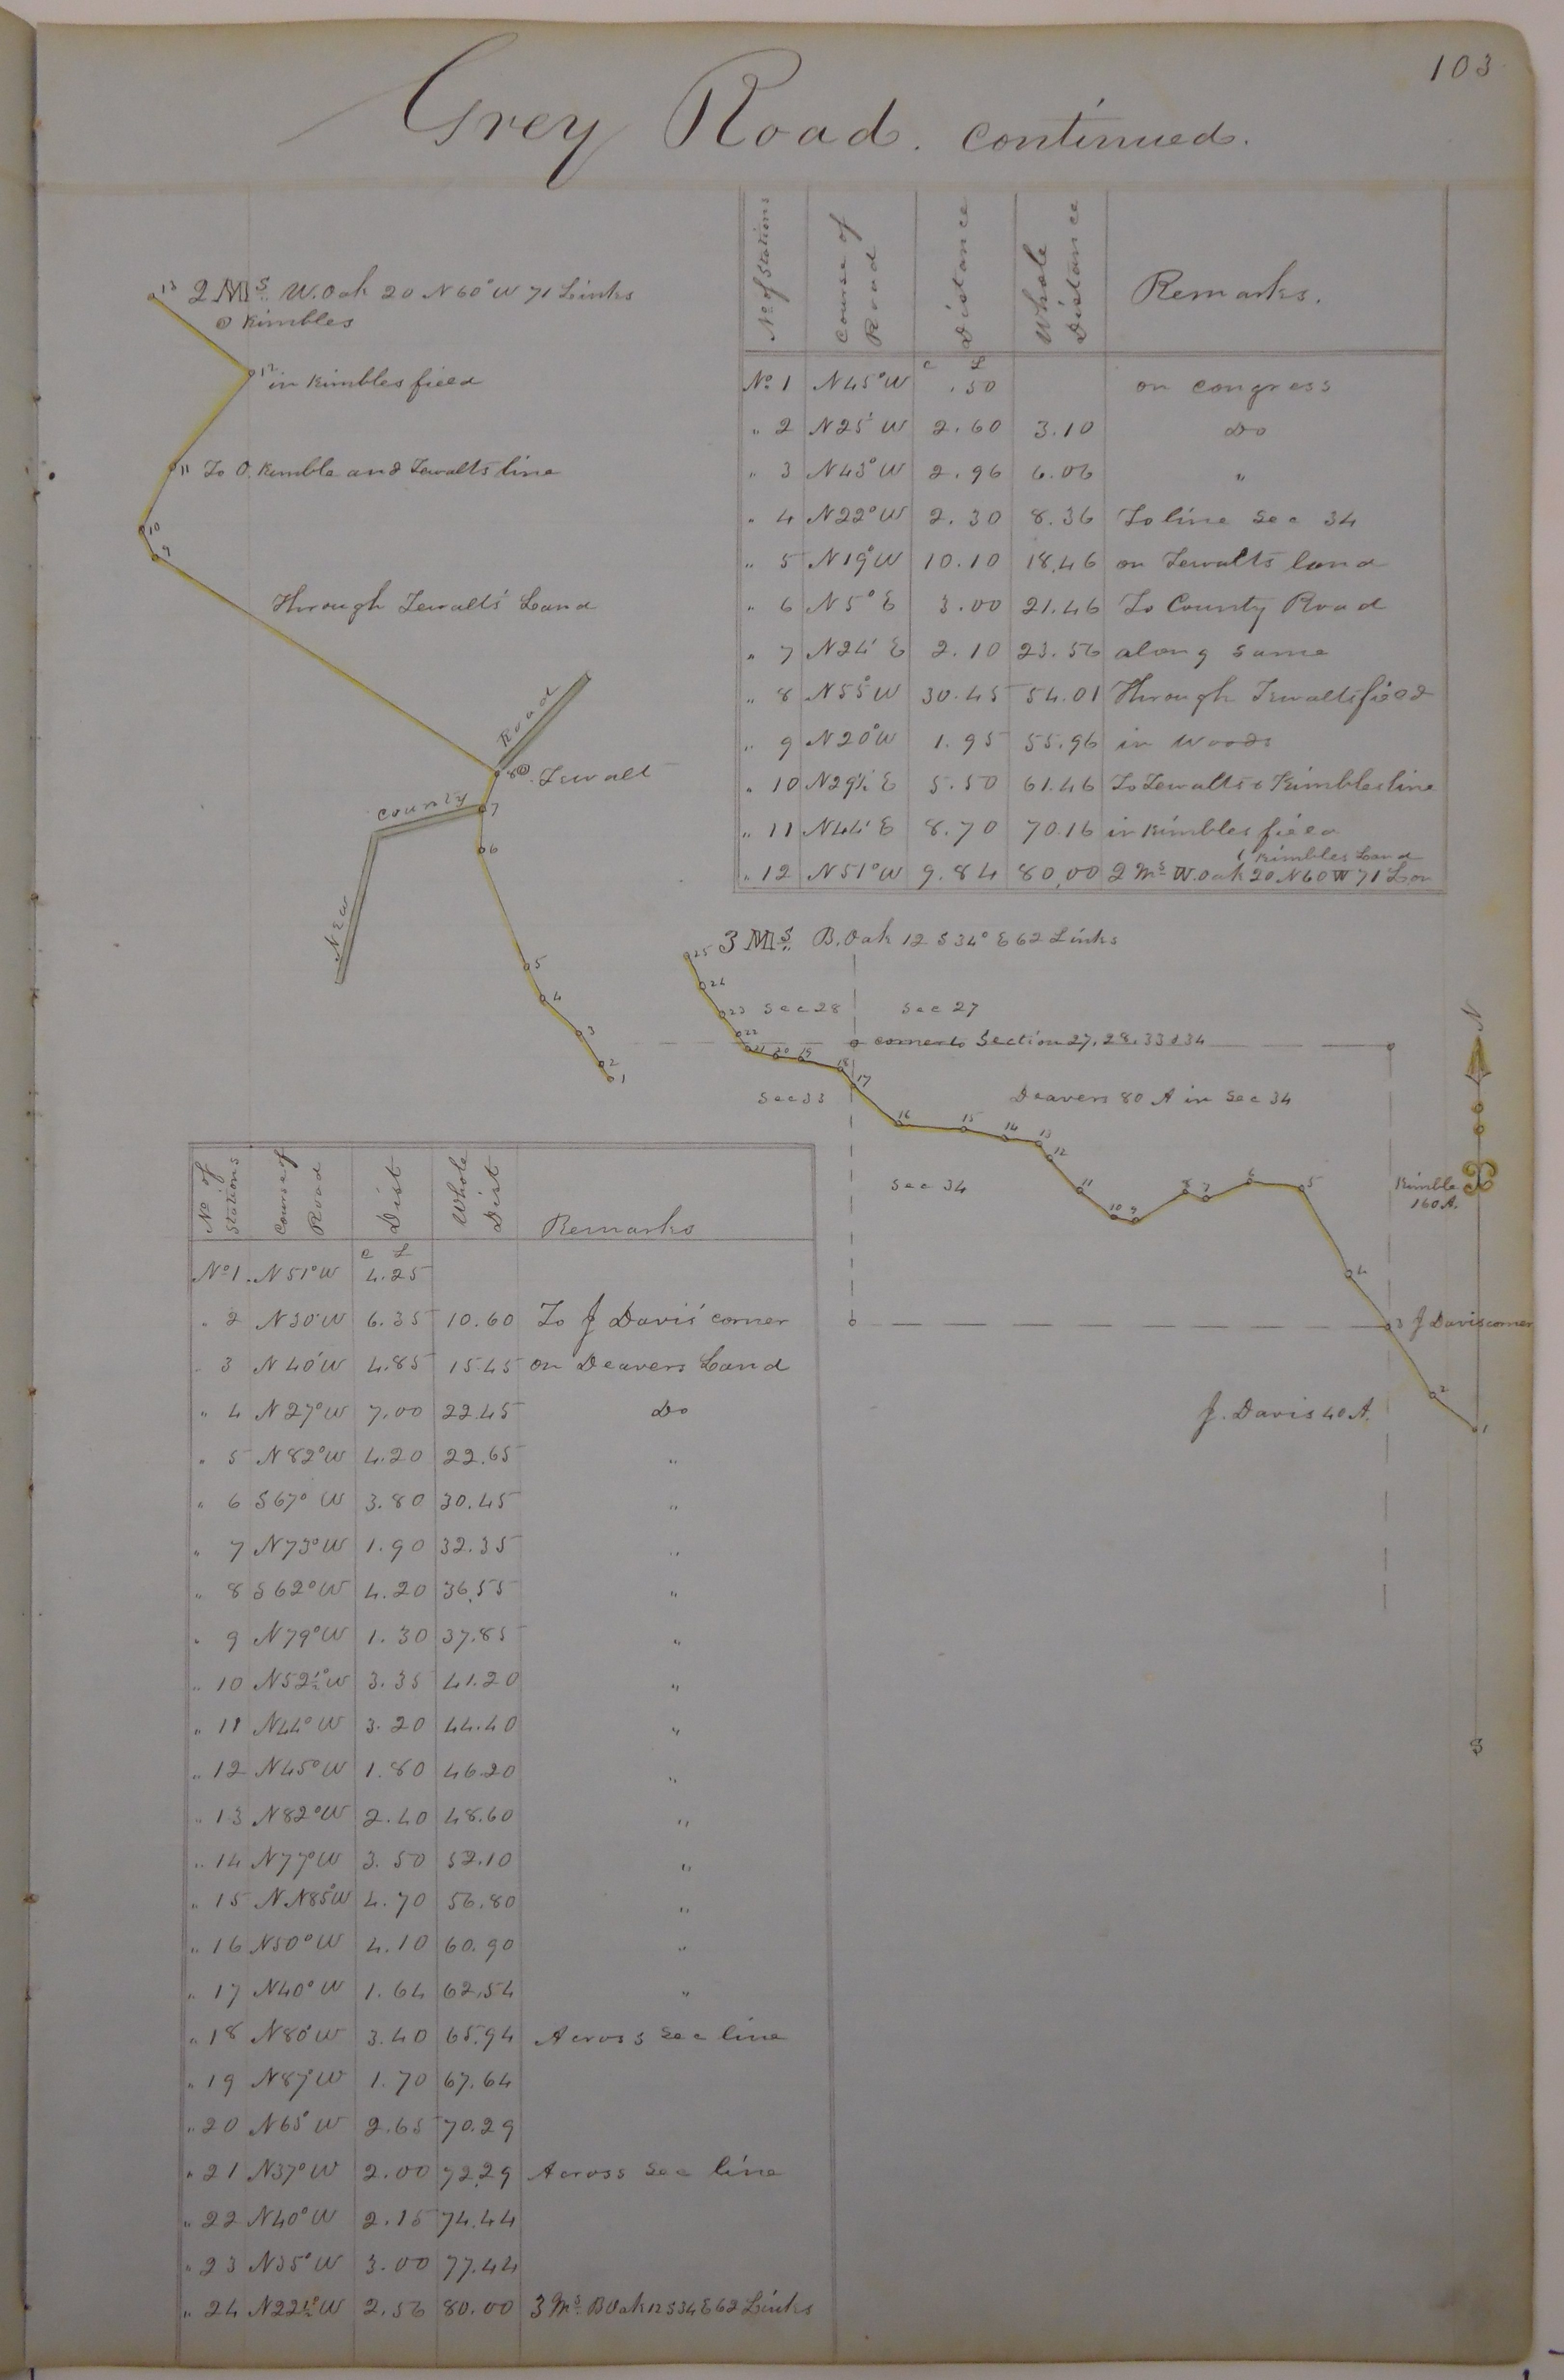 103
Grey Road. continued.
13 2 Ms. W. Oak 20 N 60° W 71 Links
Kimbles
12 in Kimbles field
11 To O. Kimble and Tewalts line
10
9
Through Tewalts Land
Road
8 Tewalt
County
7
6
New
5
4
3
2
1
No of Stations | Course of Road | Distance | Whole Distance | Remarks.
C L
No 1 | N 45° W | .50 | | on congress
" 2 | N 25 W | 2.60 | 3.10 | Do
" 3 | N 43° W | 2.96 | 6.06 | "
" 4 | N 22° W | 2.30 | 8.36 | To line Sec 34
" 5 | N 19° W | 10.10 | 18.46 | on Tewalts land
" 6 | N 5° E | 3.00 | 21.46 | To County Road
" 7 | N 24 E | 2.10 | 23.56 | along same
" 8 | N 55° W | 30.45 | 54.01 | Through Tewalts field
" 9 | N 20° W | 1.95 | 55.96 | in Woods
" 10 | N 29½ E | 5.50 | 61.46 | To Tewalts & Kimbles line
" 11 | N 44 E | 8.70 | 70.16 | in Kimbles field
( Kimbles Land
" 12 | N 51° W | 9.84 | 80.00 | 2 Ms W. Oak 20 N 60 W 71 L on
25 3 Ms. B. Oak 12 S 34° E 62 Links
24
23 Sec 28 Sec 27
22
21 20 19 corner to Section 27, 28, 33 & 34
18
17
Sec 33
Deavers 80 A in Sec 34
16 15 14 13
12
Sec 34
11
10 9 8 7 6 5
Kimble
160 A.
4
3 J Davis corner
2
J. Davis 40 A.
1
N
S
No of Stations | Course of Road | Dist | Whole Dist | Remarks
C L
No 1 | N 51° W | 4.25
" 2 | N 30 W | 6.35 | 10.60 | To J Davis' corner
" 3 | N 40 W | 4.85 | 15.45 | on Deavers Land
" 4 | N 27° W | 7.00 | 22.45 | Do
" 5 | N 82° W | 4.20 | 22.65 | "
" 6 | S 67° W | 3.80 | 30.45 | "
" 7 | N 73° W | 1.90 | 32.35 | "
" 8 | S 62° W | 4.20 | 36.55 | "
" 9 | N 79° W | 1.30 | 37.85 | "
" 10 | N 52½° W | 3.35 | 41.20 | "
" 11 | N 44° W | 3.20 | 44.40 | "
" 12 | N 45° W | 1.80 | 46.20 | "
" 13 | N 82° W | 2.40 | 48.60 | "
" 14 | N 77° W | 3.50 | 52.10 | "
" 15 | N N 85° W | 4.70 | 56.80 | "
" 16 | N 50° W | 4.10 | 60.90 | "
" 17 | N 40° W | 1.64 | 62.54 | "
" 18 | N 80 W | 3.40 | 65.94 | Across Sec line
" 19 | N 87 W | 1.70 | 67.64
" 20 | N 65° W | 2.65 | 70.29
" 21 | N 37° W | 2.00 | 72.29 | Across Sec line
" 22 | N 40° W | 2.15 | 74.44
" 23 | N 35° W | 3.00 | 77.44
" 24 | N 22½° W | 2.56 | 80.00 | 3 Ms. B Oak 12 S 34 E 62 Links